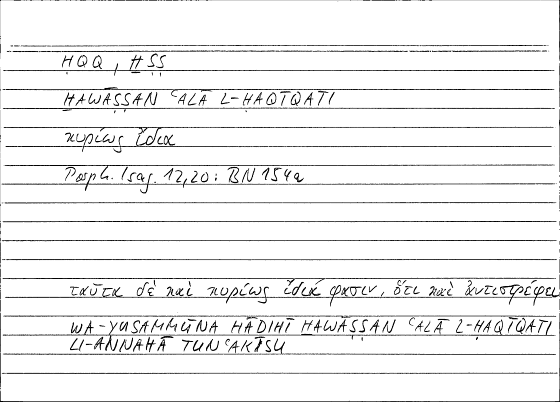 ḤQQ, ḪṢṢ
ḪAWĀṢṢAN ʿALĀ L-ḤAQĪQATI
κυρίως ἴδια
Porph. Isag. 12,20: BN 154a
ταῦτα δὲ καὶ κυρίως ἴδιά φασιν, ὅτι καὶ ἀντιστρέφει
WA-YUSAMMŪNA HĀḎIHĪ ḪAWĀṢṢAN ʿALĀ L-ḤAQĪQATI
LI-ANNAHĀ TUNʿAKISU